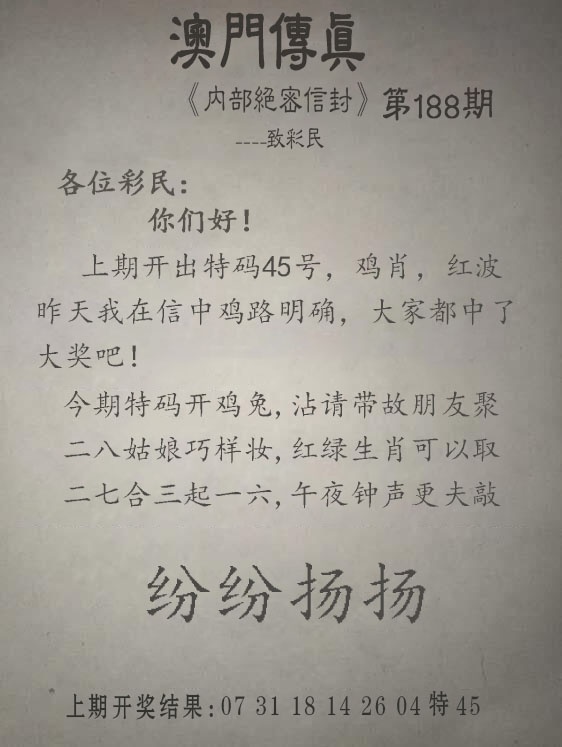 澳門傳眞
《内部絕密信封》第188期
----致彩民
各位彩民：
你们好！
上期开出特码45号，鸡肖，红波
昨天我在信中鸡路明确，大家都中了
大奖吧！
今期特码开鸡兔,沾请带故朋友聚
二八姑娘巧样妆,红绿生肖可以取
二七合三起一六,午夜钟声更夫敲
纷纷扬扬
上期开奖结果:07 31 18 14 26 04特45